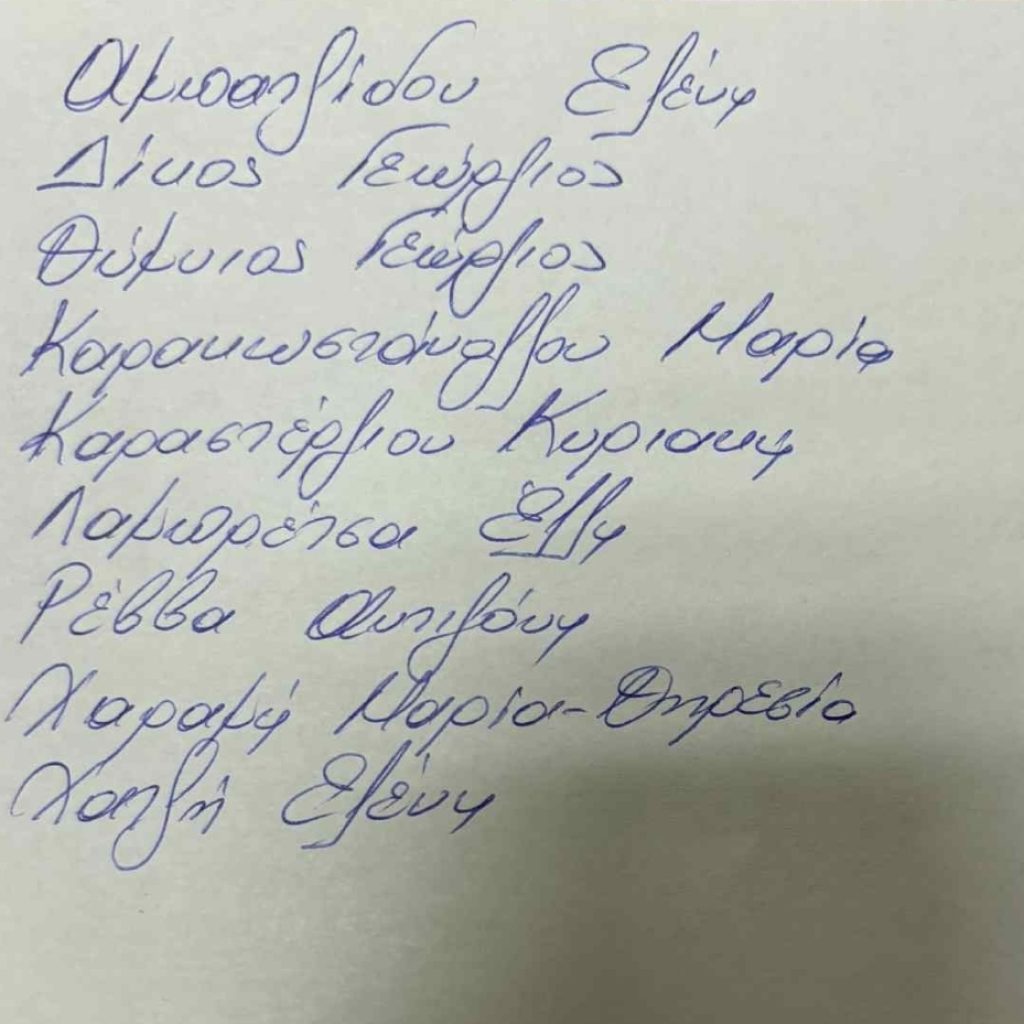 Αμπατζίδου Ελένη
Δίκος Γεώργιος
Θύμνιος Γεώργιος
Καρακωστάνογλου Μαρία
Καραστέργιου Κυριακη
Λαμπρέτσα Έλλη
Ρέββα Αντιγόνη
Χαραμή Μαρία-Θηρεσία
Χατζή Ελένη